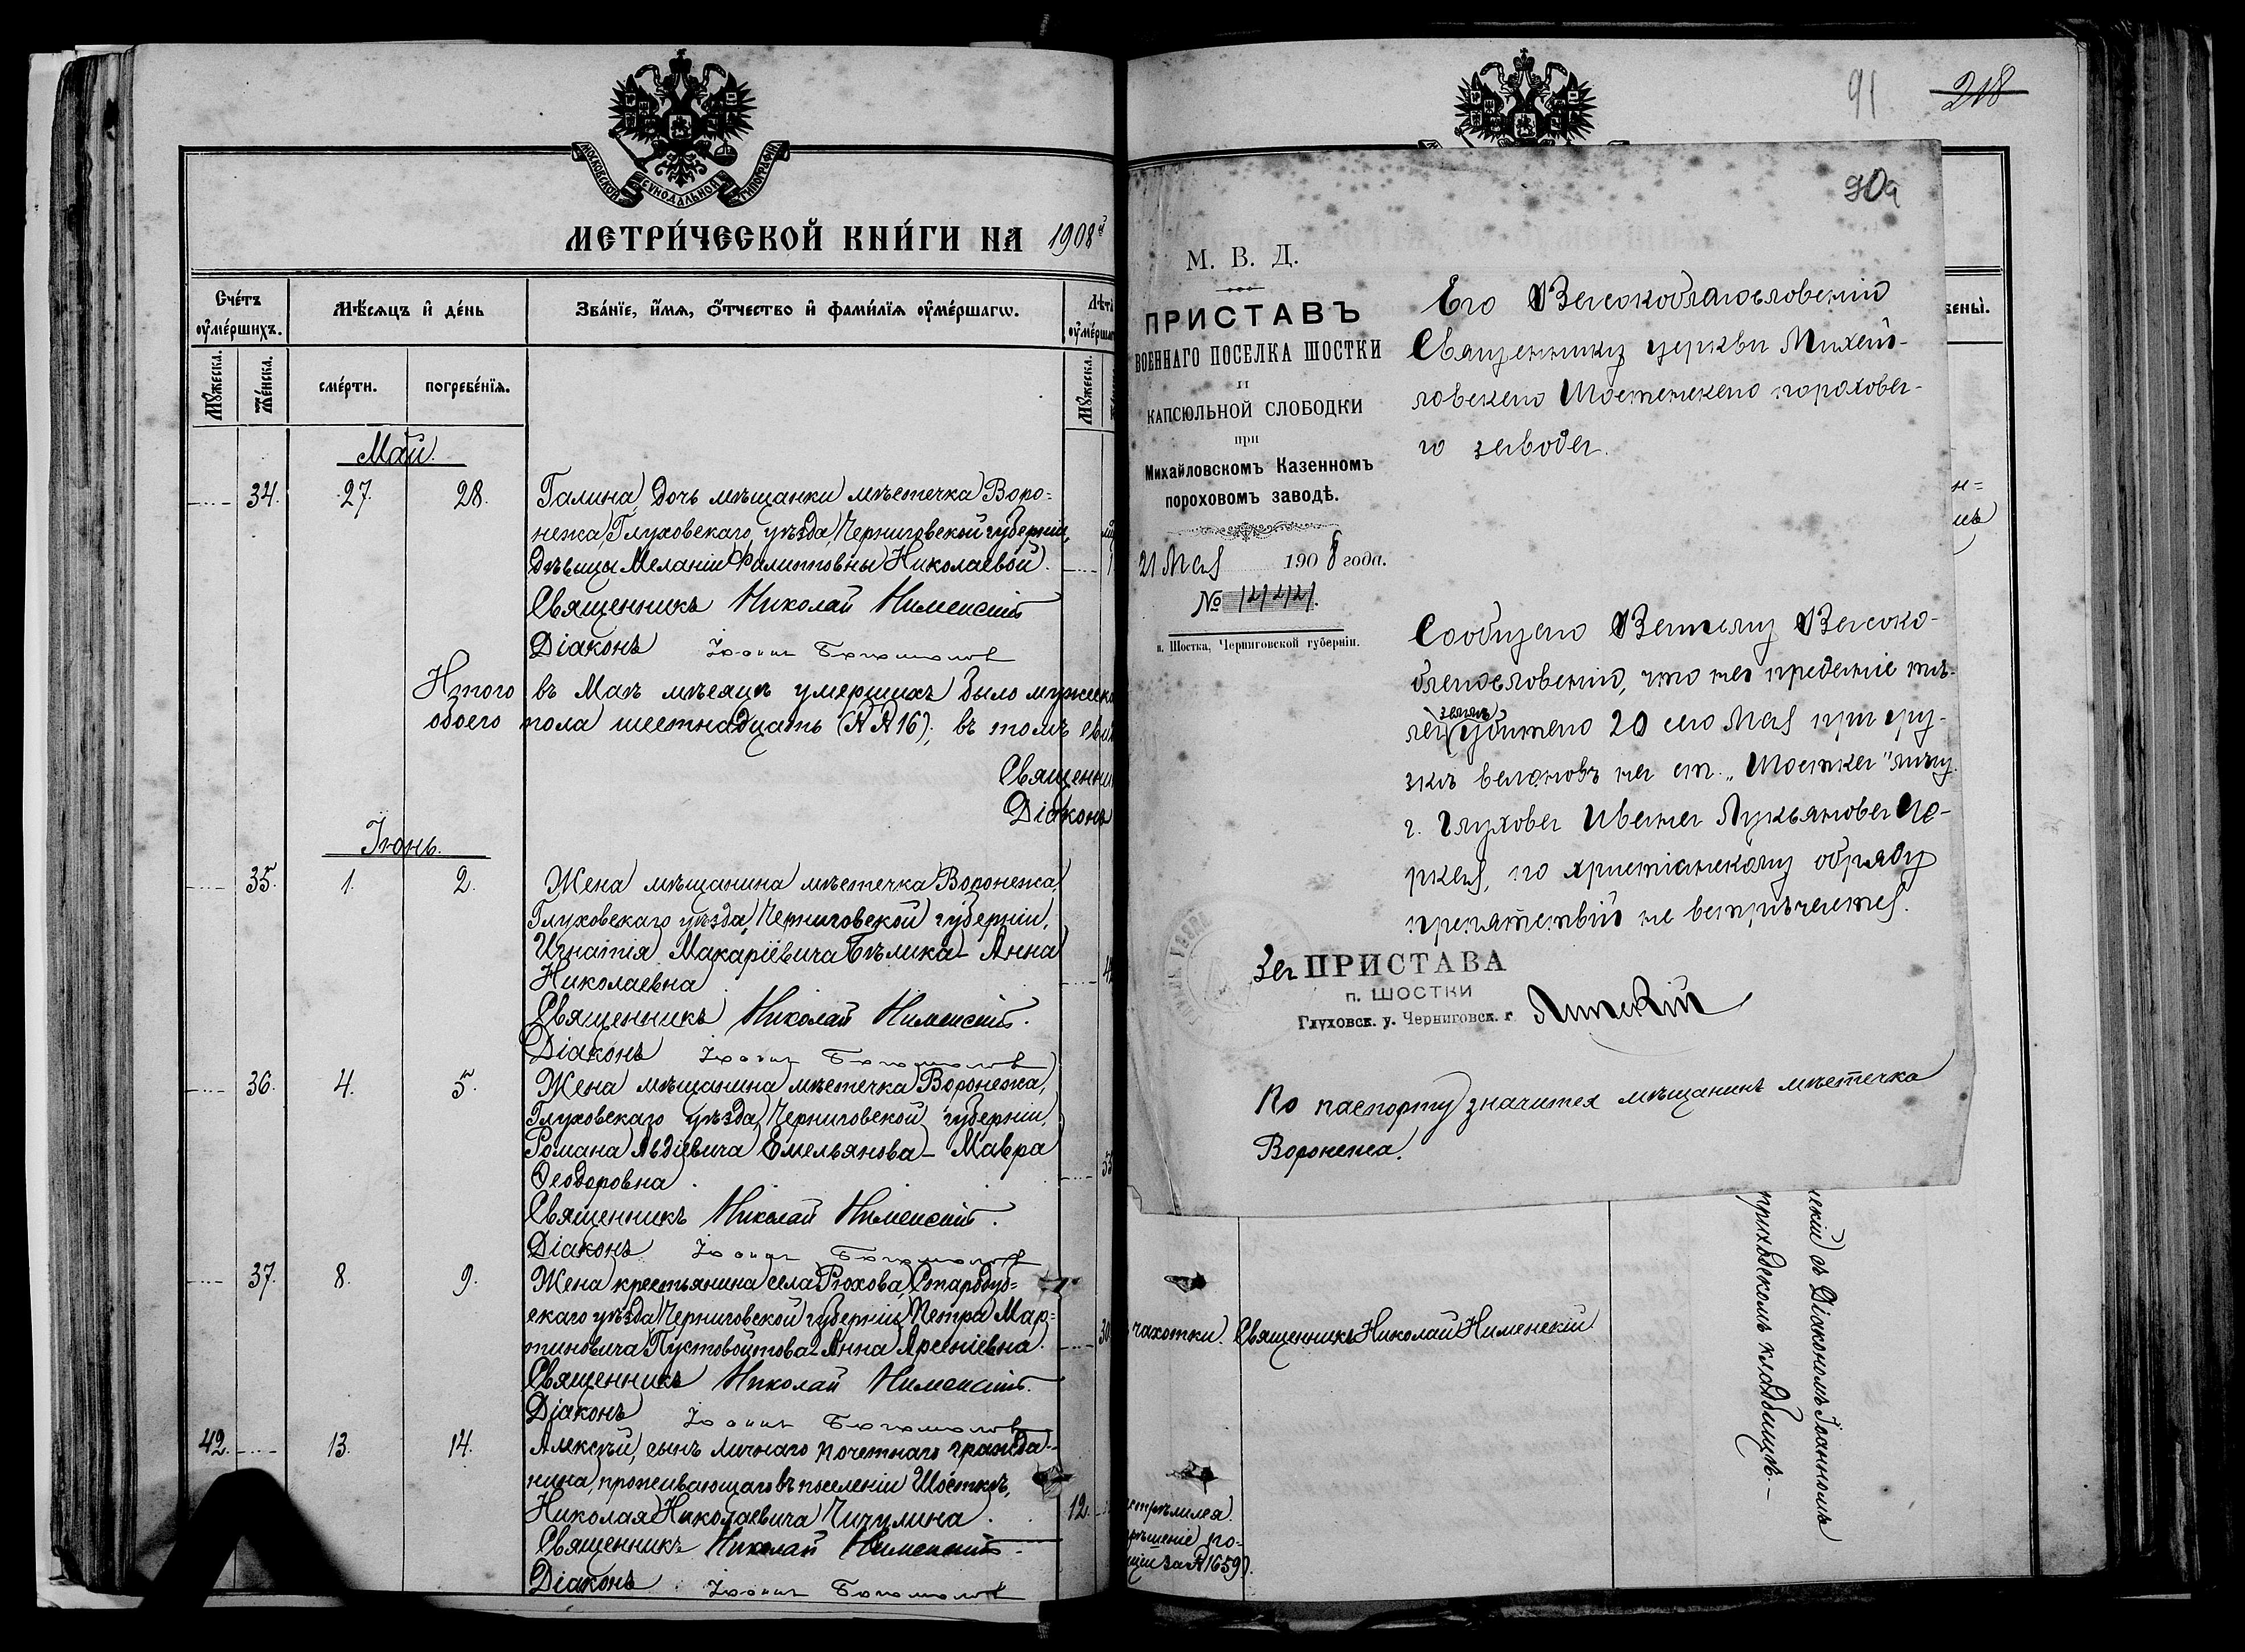 МОСКОВСКОЙ СѴНОДАЛЬНОЙ ТИПОГРАФІИ
МЕТРИ́ЧЕСКОЙ КНИ́ГИ НА 1908й
Сче́тъ ᲂу҆ме́ршихъ.
Мѣ́сяцъ и҆ де́нь
Зва́нїе, и҆́мѧ, ѻ҆́тчество и҆ фами́лїѧ ᲂу҆ме́ршагѡ.
Лѣта ᲂу҆ме́ршаг
Мꙋ́жеска.
Же́нска.
сме́рти.
погребе́нїѧ.
Мꙋ́жеска.
Май.
34. 27. 28. Галина, дочь мѣщанки мѣстечка Воро=
нежа, Глуховскаго уѣзда, Черниговской губерніи,
дѣвицы Меланіи Филипповны Николаевой.
Священникъ Николай Нименскій
Діаконъ Іоаннъ Богомолов
Итого въ Маѣ мѣсяцѣ умершихъ было мужеска
обоего пола шестнадцать (№№ 16); въ томъ
Священни
Діаконъ
Іюнь.
35. 1. 2. Жена мѣщанина мѣстечка Воронежа,
Глуховскаго уѣзда, Черниговской губерніи,
Игнатія Макаріевича Бѣлика – Анна
Николаевна
Священникъ Николай Нименскій.
Діаконъ Іоаннъ Богомолов
36. 4. 5. Жена мѣщанина мѣстечка Воронежа,
Глуховскаго уѣзда, Черниговской губерніи,
Романа Авдіевича Емельянова – Мавра
Ѳеодоровна
Священникъ Николай Нименскій.
Діаконъ Іоаннъ Богомолов
37. 8. 9. Жена крестьянина села Рюхова, Стародуб=
скаго уѣзда Черниговской губерніи, Петра Мар=
тиновича Пустовойтова – Анна Арсеніевна.
30
Священникъ Николай Нименскій.
Діаконъ Іоаннъ Богомолов
42. 13. 14. Алексѣй, сынъ личнаго почетнаго гражда=
нина, проживающаго въ поселеніи Шосткѣ,
Николая Николаевича Чичулина.
12.
Священникъ Николай Нименскій.
Діаконъ Іоаннъ Богомолов
91 218
90а
М. В. Д.
ПРИСТАВЪ
ВОЕННАГО ПОСЕЛКА ШОСТКИ
И
КАПСЮЛЬНОЙ СЛОБОДКИ
при
Михайловскомъ Казенномъ
пороховомъ заводѣ.
21 Мая 1908 года.
№
п. Шостка, Черниговской губерніи.
Его Высокоблагословению
Священнику церкви Михай-
ловскаго Шостенскаго порохова-
го завода.
Сообщаю Вашему Высоко-
благословению, что на преданіе тѣ-
ла убитаго 20 сего Мая при гру-
зкѣ вагоновъ на ст. „Шостка"
г. Глухова Ивана Лукьянова
по христіанскому обряду
препятствій не встрѣчается.
За ПРИСТАВА
п. ШОСТКИ
Глуховск. у. Черниговск. г.
По паспорту значится мѣщанинъ мѣстечка
Воронежа.
чахотки. Священникъ Николай Нименскій
скій съ Діакономъ Іоанномъ
приходскомъ кладбищѣ.–
стрѣлился.
рѣшеніе по-
ціи за №1659).